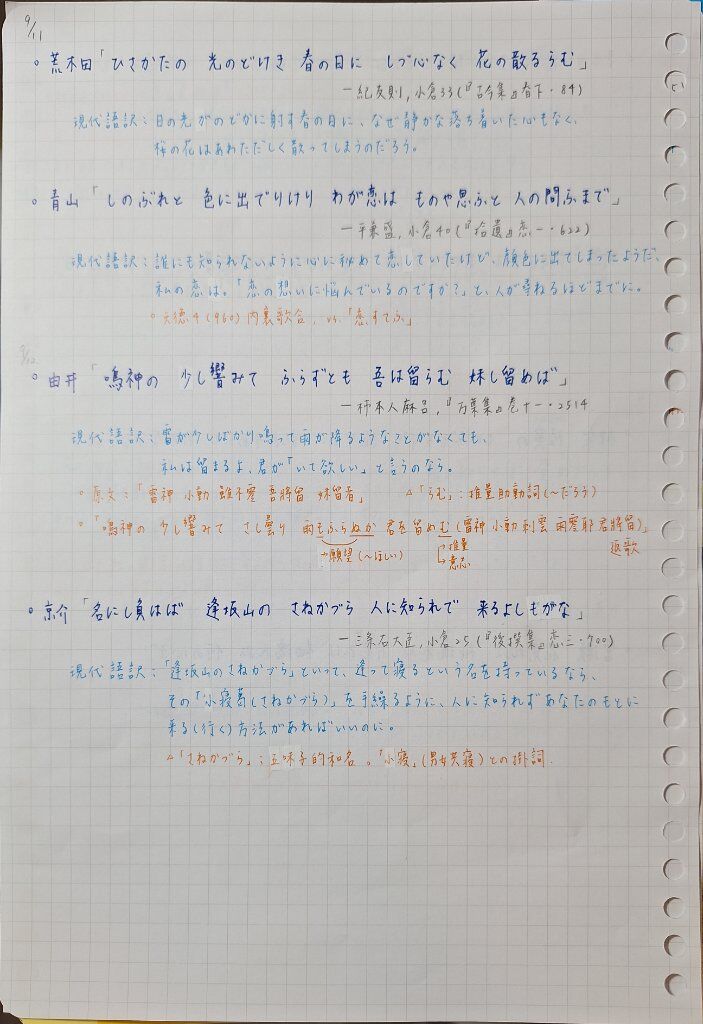 9/11
○ 荒木田「ひさかたの 光のどけき 春の日に しづ心なく 花の散るらむ」
―紀友則, 小倉33(『古今集』春下・84)
現代語訳：日の光がのどかに射す春の日に、なぜ静かな落ち着いた心もなく、
桜の花はあわただしく散ってしまうのだろう。
○ 青山「しのぶれど 色に出でりけり わが恋は ものや思ふと 人の問ふまで」
―平兼盛, 小倉40(『拾遺』恋一・622)
現代語訳：誰にも知られないように心に秘めて恋していたけど、顔色に出てしまったようだ、
私の恋は。「恋の想いに悩んでいるのですか？」と、人が尋ねるほどまでに。
○ 天徳4(960)内裏歌合, vs.「恋すてふ」
9/12
○ 由井「鳴神の 少し響みて ふらずとも 吾は留らむ 妹し留めば」
―柿本人麻呂,『万葉集』巻十一・2514
現代語訳：雷が少しばかり鳴って雨が降るようなことがなくても、
私は留まるよ、君が「いて欲しい」と言うのなら。
○ 原文：「雷神 小動 雖不零 吾將留 妹留者」 △「らむ」：推量助動詞(～だろう)
○「鳴神の 少し響みて さし曇り 雨もふらぬか 君を留めむ(雷神 小動 刺雲 雨零耶 君將留)」
→願望(～ほしい) →推量 返歌
意志
○ 京介「名にし負はば 逢坂山の さねかづら 人に知られで 来るよしもがな」
―三条右大臣, 小倉25(『後撰集』恋三・700)
現代語訳：「逢坂山のさねかづら」といって、逢って寝るという名を持っているなら、
その「小寝葛(さねかづら)」を手繰るように、人に知られずあなたのもとに
来る(行く)方法があればいいのに。
△「さねかづら」：五味子的和名。「小寝」(男女共寝)との掛詞.